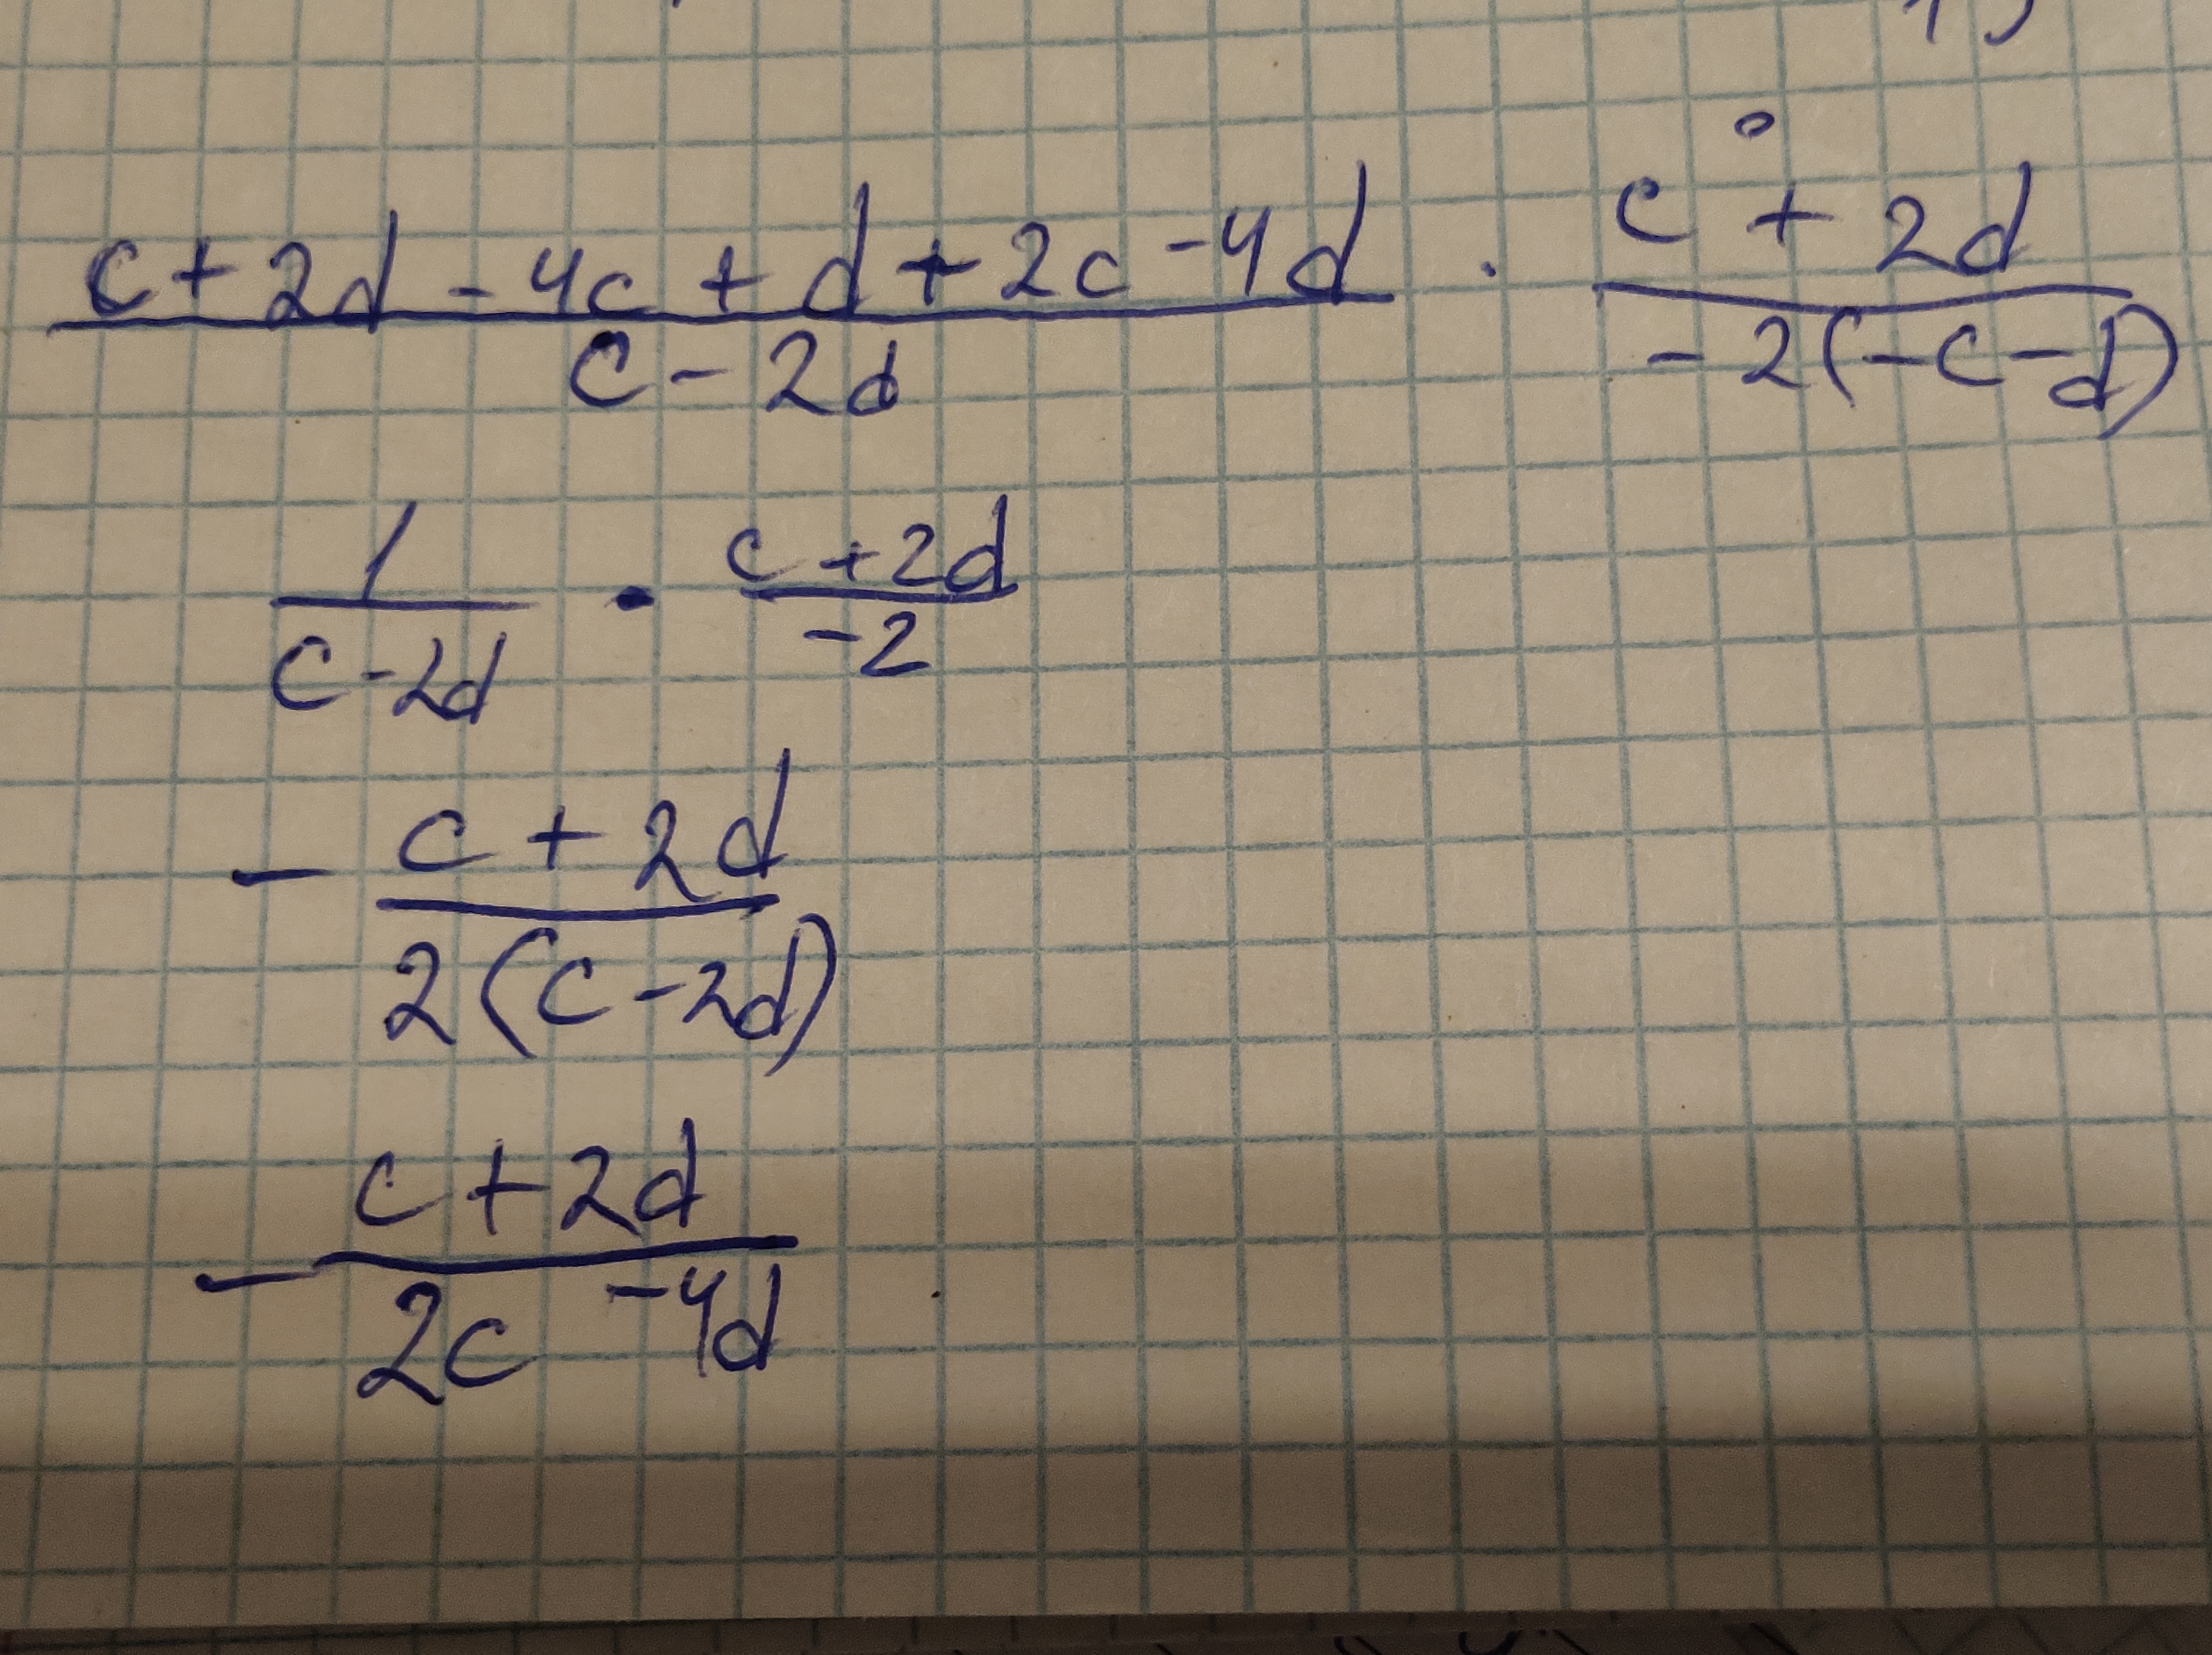 c + 2d - 4c + d + 2c - 4d / c - 2d · c + 2d / -2(-c-d)
1 / c - 2d · c + 2d / -2
- c + 2d / 2(c - 2d)
- c + 2d / 2c - 4d